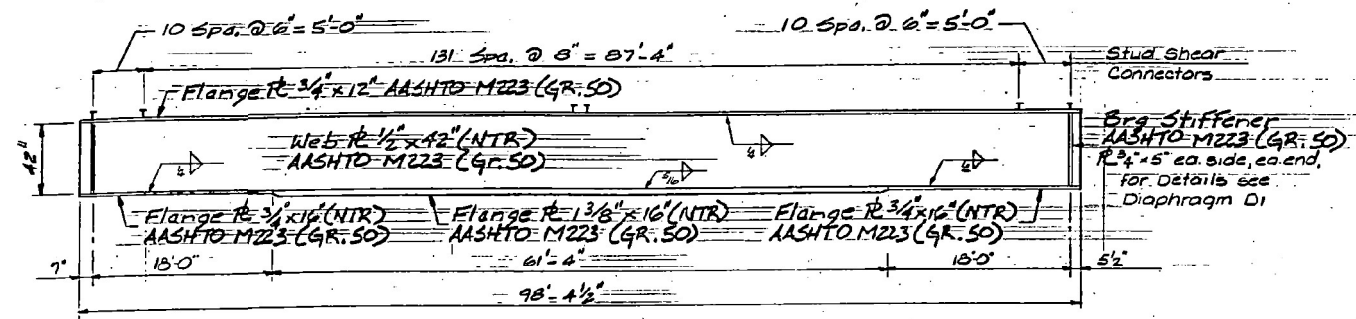 10 Spa. @ 6" = 5'-0"
10 Spa. @ 6" = 5'-0"
131 Spa. @ 8" = 87'-4"
Stud Shear
Connectors
Flange ℄ 3/4" x 12" AASHTO M223 (GR. 50)
42"
Web ℄ 1/2" x 42" (NTR)
AASHTO M223 (Gr. 50)
1/4
1/4
5/16
1/4
Brg Stiffener
AASHTO M223 (GR. 50)
℄ 3/4" x 5" ea. side, ea. end,
for Details see
Diaphragm D1
Flange ℄ 3/4" x 16" (NTR)
AASHTO M223 (GR. 50)
Flange ℄ 1 3/8" x 16" (NTR)
AASHTO M223 (GR. 50)
Flange ℄ 3/4" x 16" (NTR)
AASHTO M223 (GR. 50)
7"
18'-0"
61'-4"
18'-0"
5 1/2"
98'-4 1/2"